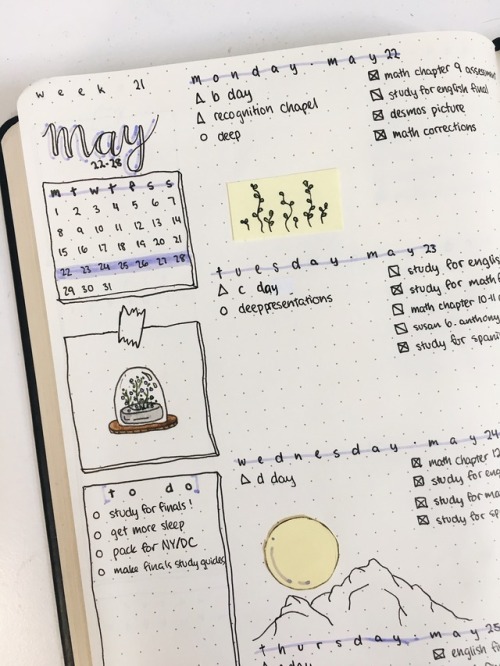 week 21
May
22-28
m t w t f s s
1 2 3 4 5 6 7
8 9 10 11 12 13 14
15 16 17 18 19 20 21
22 23 24 25 26 27 28
29 30 31
to do
study for finals!
get more sleep
pack for NY/DC
make finals study guides
monday. may 22
b day
recognition chapel
deep
math chapter 9
study for english final
desmos picture
math corrections
tuesday. may 23
c day
deeppresentations
study for
study for
math chapter 10-11
susan b. anthony
study for
wednesday. may 24
d day
math chapter 12
study for
study for
study for
thursday. may 25
day
english